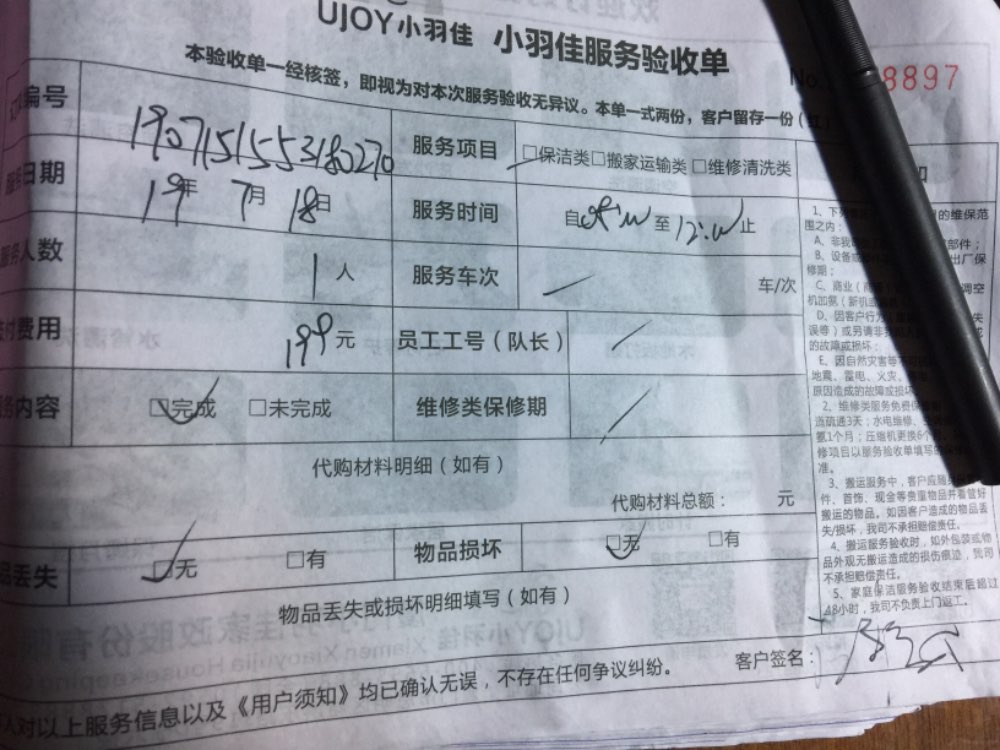 UJOY小羽佳 小羽佳服务验收单
No. 8897
本验收单一经核签，即视为对本次服务验收无异议。本单一式两份，客户留存一份
编号 190715155318027​0 服务项目 □保洁类□搬家运输类□维修清洗类
日期 19年 7月 18日 服务时间 自 至 12:00 止
服务人数 1人 服务车次 / 车/次
付费用 199元 员工工号（队长） /
务内容 ☑完成 □未完成 维修类保修期 /
代购材料明细（如有）
代购材料总额： 元
品丢失 ☑无 □有 物品损坏 ☑无 □有
物品丢失或损坏明细填写（如有）
客户签名：
人对以上服务信息以及《用户须知》均已确认无误，不存在任何争议纠纷。
1、下 的维保范
围之内：
A、非我 部件；
B、设备或 出厂保
修期；
C、商业（ 调空
机加氨（新机或
D、因客户行为 失
误等）或另请非
的故障或损坏：
E、因自然灾害等
地震、雷电、火灾、
原因造成的故障或损坏
2、维修类服务免费保
道疏通3天；水电维修、
氨1个月；压缩机更换6个
修项目以服务验收单填写
准。
3、搬运服务中，客户应随
件、首饰、现金等贵重物品并看管好
搬运的物品。如因客户造成的物品丢
失/损坏，我司不承担赔偿责任。
4、搬运服务验收时，如外包装或物
品外观无搬运造成的损伤痕迹，我司
不承担赔偿责任。
5、家庭保洁服务验收结束后超过
48小时，我司不负责上门返工。